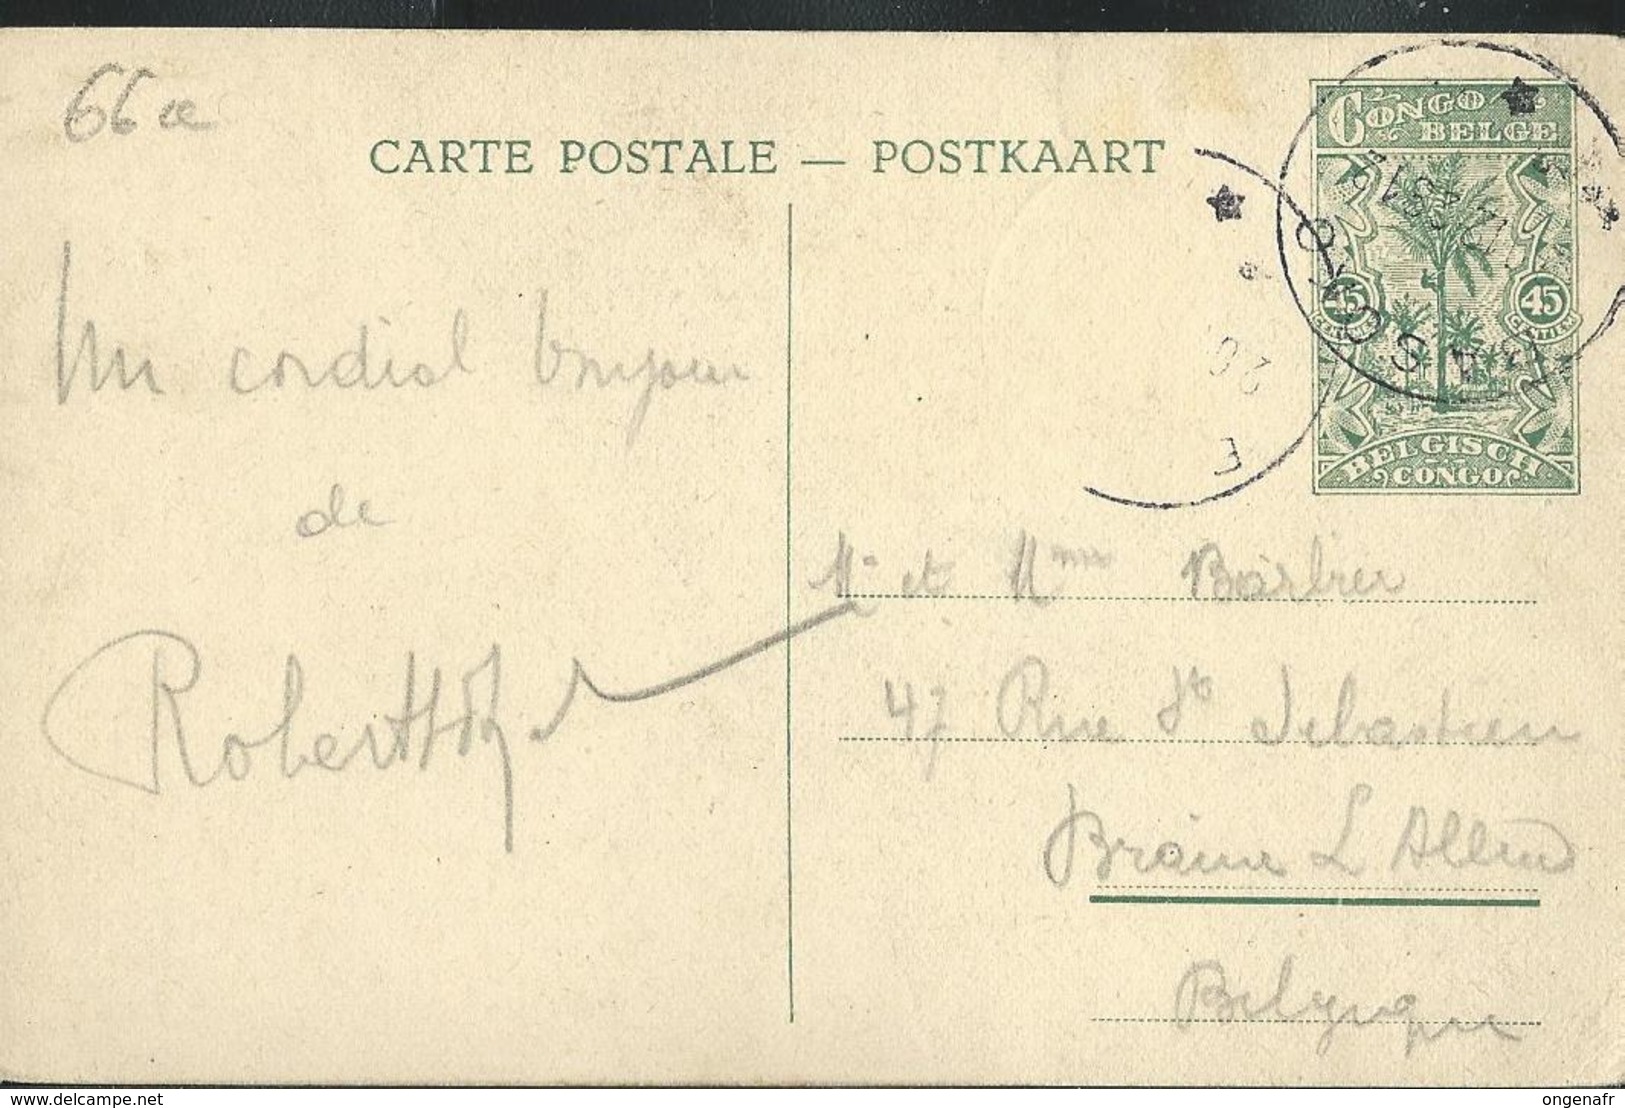 66 a
CARTE POSTALE — POSTKAART
CONGO
BELGE
45
45
CENTIEM
BELGISCH
CONGO
Un cordial bonjour
de
Robert
Mr et Mme Barbier
47 Rue St Sebastien
Braine L Alleud
Belgique
delcampe.net
ongenafr